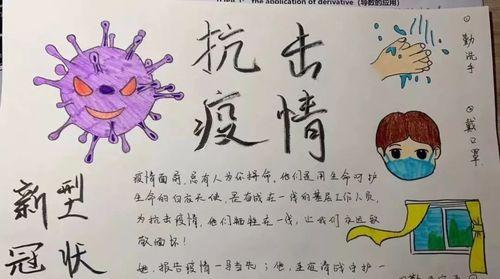 the application of derivative (导数的应用)
抗击
疫情
①勤洗手
②戴口罩
新型
冠状
疫情面前,总有人为你拼命。他们是用生命守护
生命的白衣天使,是奋战在一线的基层工作人员,
为抗击疫情,他们牺牲在一线,让我们永远致
敬缅怀!
她,报告疫情一马当先;他,主疫情战守护一